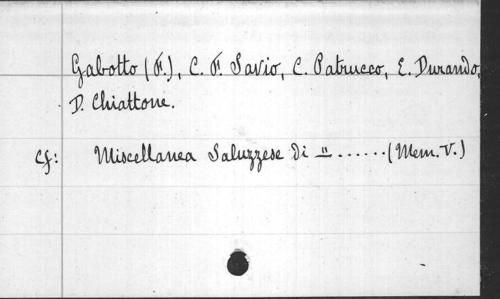 Gabotto (F.), C. F. Savio, C. Patrucco, E. Durando,
D. Chiattone.
cf: Miscellanea Saluzzese di " ...... (Mem. V.)